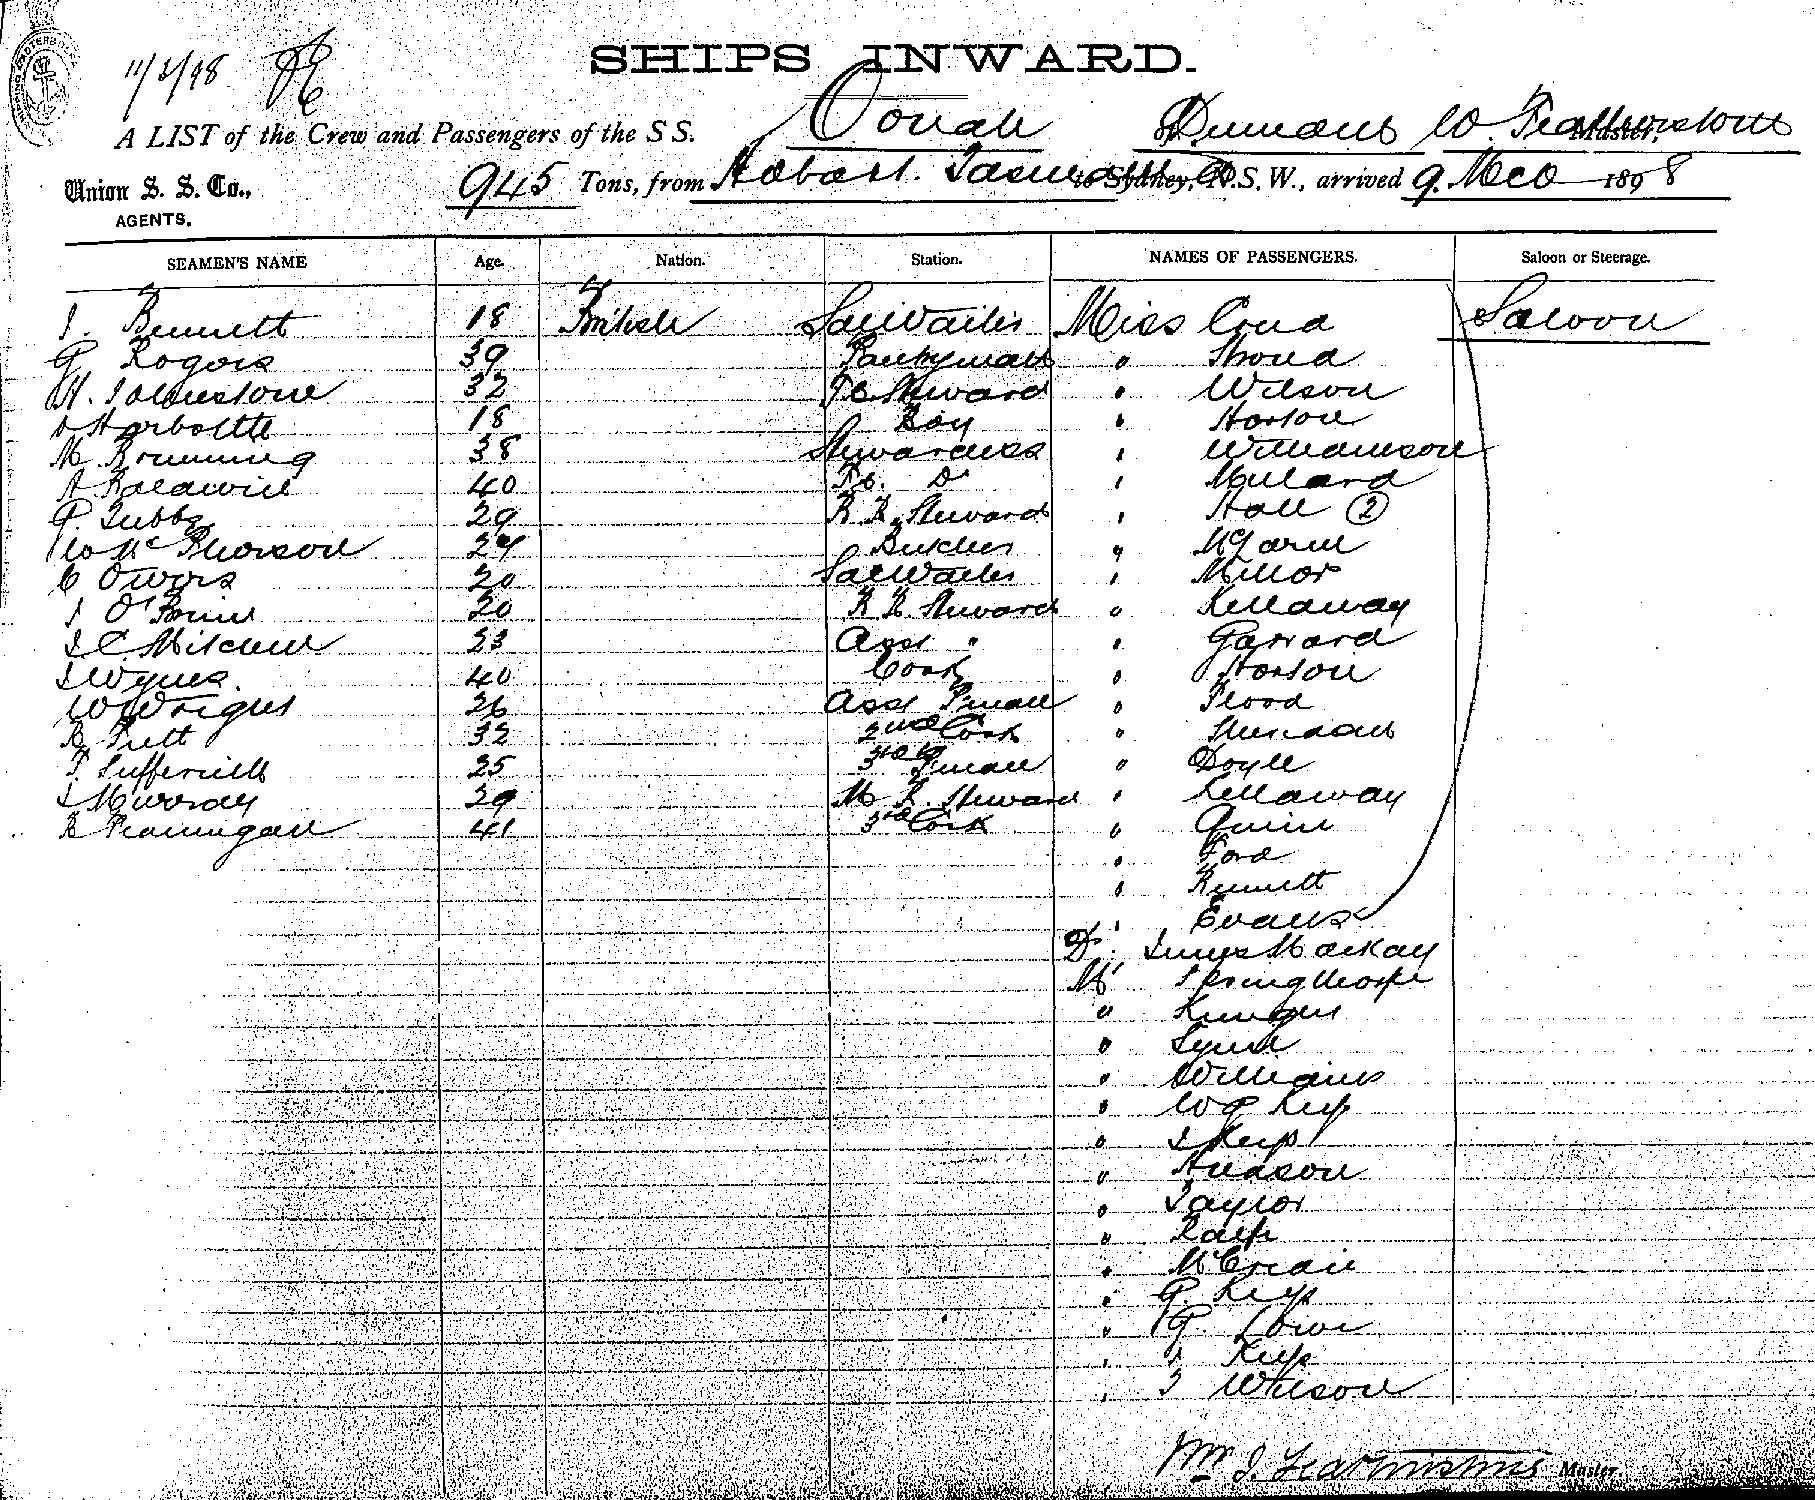 11/3/98
SHIPS INWARD.
A LIST of the Crew and Passengers of the S S. Oonah of Dunedin W. Featherstone Master,
Union S. S. Co.,
AGENTS.
945 Tons, from Hobart. Tasmania to Sydney, N.S.W., arrived 9. Mch 1898
SEAMEN'S NAME Age. Nation. Station. NAMES OF PASSENGERS. Saloon or Steerage.
J. Bennett 18 British Sal Waiter Miss Saloon
G Rogers 39 Pantryman "
H. Johnstone 32 F C Steward " Wilson
Harbottle 18 Boy " Horton
M Brunning 38 Stewardess " Williamson
A Baldwin 40 F C. Do " Millard
G. Tubbs 29 B R. Steward " Hall 2
Mc Pherson 24 Butcher "
C Owers 20 Sal Waiter " Mellor
J O'Brien 20 B R. Steward " Kellaway
J C. Mitchell 23 Asst " " Garrard
J Wynes 40 Cook " Horton
W Wright 26 Asst P'man " Flood
R Putt 32 2nd Cook " Sheridan
25 3rd P'man " Doyle
J Murray 29 M R. Steward " Kellaway
B Flannigan 41 3rd Cook " Quinn
" Ford
" Bennett
" Evans
Dr. Innes Mackay
Mr Springthorpe
"
" Lynch
" Williams
" W G Kemp
" J Kemp
" Hudson
" Taylor
" Ralph
" McCrain
" G. Kemp
" G. Lowe
" Kemp
" J Wilson
Wm J. Featherstone Master